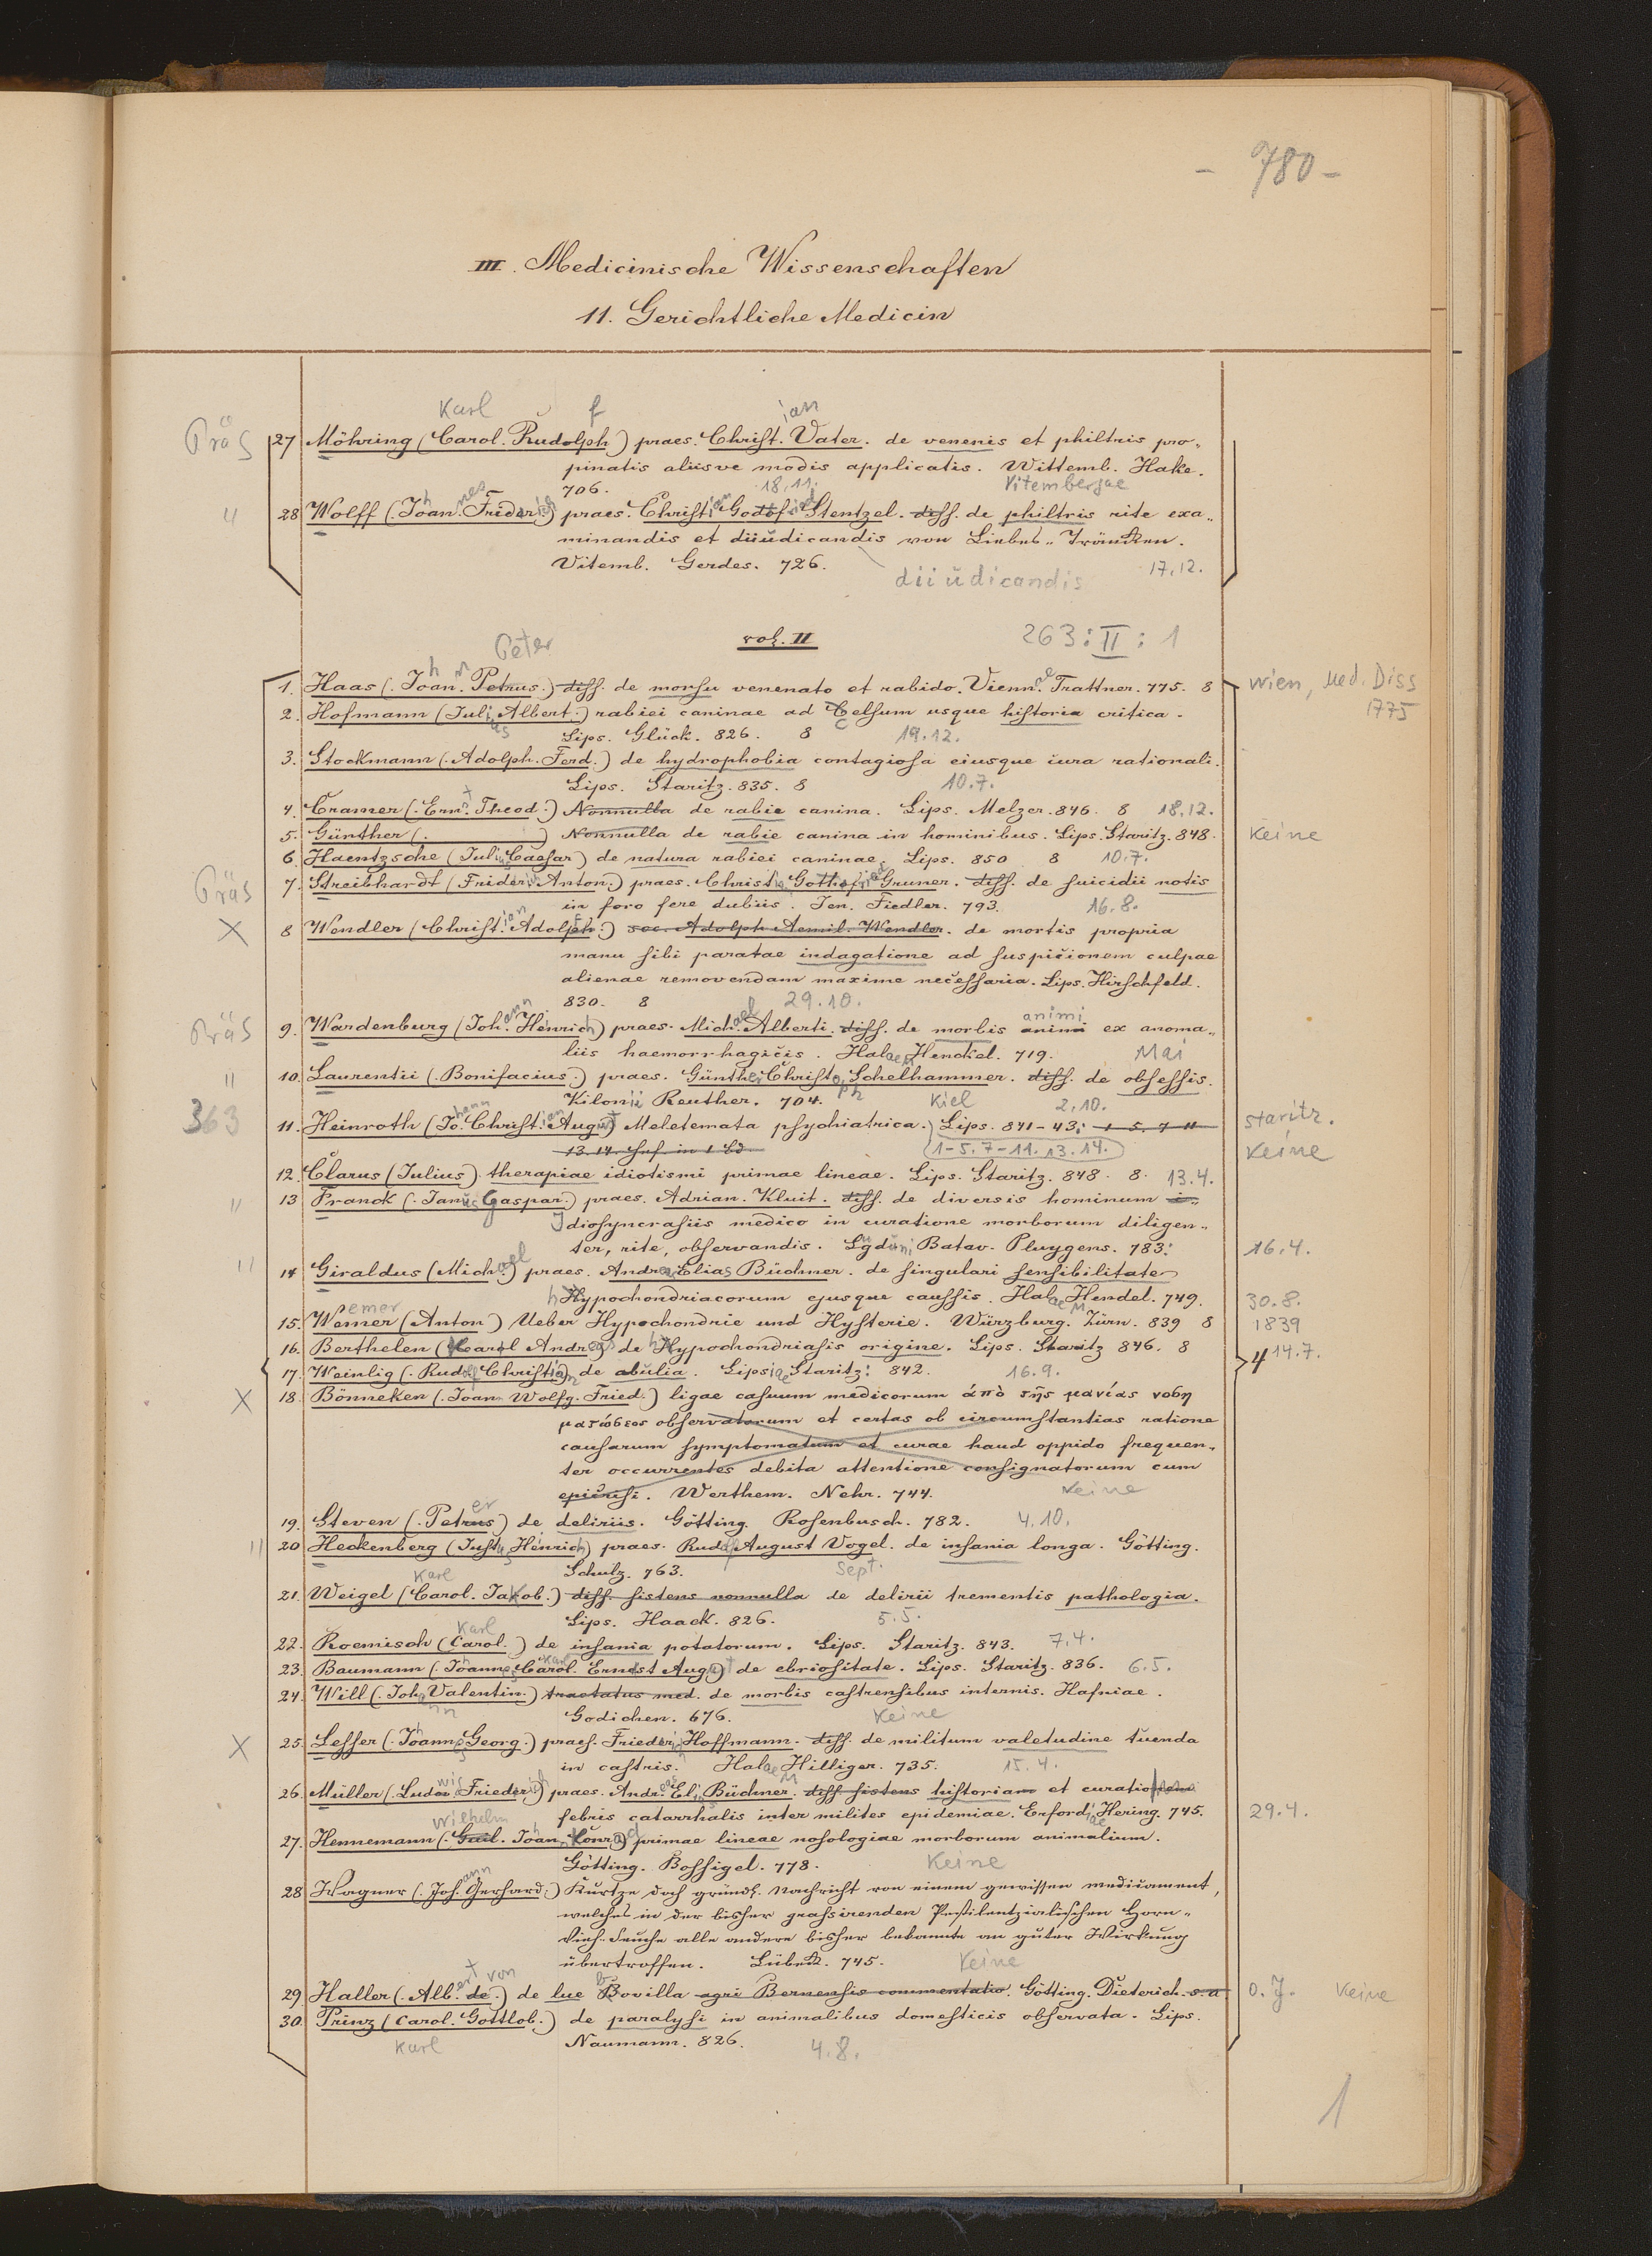 - 780 -
III. Medicinische Wissenschaften
11. Gerichtliche Medicin
Karl f ian
Präs 27 Möhring (Carol. Rudolph) praes. Christ. Vater. de venenis et philtris pro-
pinatis aliisve modis applicatis. Wittemb. Hake.
706. 18.11. Vitembergae
" 28 Wolff (Joan. Frider.) praes. Christian Godofr. Stentzel. diss. de philtris rite exa-
minandis et diiudicandis von Liebes-Träncken.
Vitemb. Gerdes. 726. diiudicandis 17.12.
vol. II 263:II:1
Peter
1. Haas (Joan. Petrus.) diss. de morsu venenato et rabido. Vienn. Trattner. 775. 8 Wien, Med. Diss
1775
2. Hofmann (Juli Albert.) rabiei caninae ad Celsum usque historia critica.
Lips. Glück. 826. 8 19.12.
3. Stockmann (Adolph. Ferd.) de hydrophobia contagiosa eiusque cura rationali.
Lips. Staritz. 835. 8 10.7.
4. Cramer (Ern. Theod.) Nonnulla de rabie canina. Lips. Melzer. 846. 8 18.12.
5. Günther ( ) Nonnulla de rabie canina in hominibus. Lips. Staritz. 848. Keine
6. Haentzsche (Julius Caesar) de natura rabiei caninae. Lips. 850 8 10.7.
Präs 7. Streibhardt (Frider. Anton.) praes. Christ. Gothofried Gruner. diss. de suicidii notis
in foro fere dubiis. Jen. Fiedler. 793. 16.8.
X 8 Wendler (Christian Adolph.) soc. Adolph Aemil. Wendler. de mortis propria
manu sibi paratae indagatione ad suspicionem culpae
alienae removendam maxime necessaria. Lips. Hirschfeld.
830. 8 29.10.
Präs 9. Wardenburg (Johann Heinrich) praes. Michael Alberti. diss. de morbis animi ex anoma-
liis haemorrhagicis. Halae Henckel. 719. Mai
" 10. Laurentii (Bonifacius.) praes. Günther Christoph Schelhammer. diss. de obsessis.
Kilonii Reuther. 704. Kiel 2.10.
363 11. Heinroth (Johann Christian August) Meletemata psychiatrica. Lips. 841-43: 1-5. 7-11 Staritz.
13. 14. Hef. in 1 Bd (1-5. 7-11. 13. 14.) Keine
12. Clarus (Julius) therapiae idiotismi primae lineae. Lips. Staritz. 848. 8. 13.4.
" 13 Franck (Janus Gaspar.) praes. Adrian. Kluit. diss. de diversis hominum i-
Idiosyncrasiis medico in curatione morborum diligen-
ter, rite, observandis. Lgduni Batav. Pluygens. 783. 16.4.
" 14 Giraldus (Michael) praes. Andreas Elias Büchner. de singulari sensibilitate
hypochondriacorum ejusque caussis. Halae M Hendel. 749. 30.8.
15. Wemer (Anton) Ueber Hypochondrie und Hysterie. Würzburg. Zürn. 839 8 1839
16. Berthelen (Karl Andreas de hypochondriasis origine. Lips. Staritz 846. 8 4 14.7.
17. Weinlig (Rudolf Christian) de abulia. Lipsiae Staritz: 842. 16.9.
X 18. Bönneken (Joan. Wolfg. Fried.) ligae casuum medicorum ἀπὸ τῆς μανίας νοση
ματώδεος observatorum et certas ob circumstantias ratione
causarum symptomatum et curae haud oppido frequen-
ter occurrentes debita attentione consignatorum cum
epicrisi. Werthem. Nehr. 744. Keine
19. Steven (Petrus) de deliriis. Götting. Rosenbusch. 782. 4.10.
" 20 Heckenberg (Justus Henrich) praes. Rudolf August Vogel. de insania longa. Götting.
Schulz. 763. Sept.
Karl
21. Weigel (Carol. Jakob.) diss. sistens nonnulla de delirii trementis pathologia.
Lips. Haack. 826. 5.5.
Karl
22. Roemisch (Carol.) de insania potatorum. Lips. Staritz. 843. 7.4.
23. Baumann (Johannes Carol. Ernest August) de ebriositate. Lips. Staritz. 836. 6.5.
24. Will (Johann Valentin.) tractatus med. de morbis castrensibus internis. Hafniae.
Godichen. 676. Keine
X 25. Lesser (Johannes Georg.) praes. Friederich Hoffmann. diss. de militum valetudine tuenda
in castris. Halae Hilliger. 735. 15.4.
26. Müller (Ludowig Friederich) praes. Andr. Elias Büchner. diss sistens historiam et curationem
febris catarrhalis inter milites epidemiae. Erfordiae Hering. 745. 29.4.
Wilhelm
27. Hennemann (Guil. Johan Konrad) primae lineae nosologiae morborum animalium.
Götting. Bossigel. 778. Keine
28 Wagner (Johann Gerhard.) Kurtze doch gründl. Nachricht von einem gewissen medicament,
welches in der bisher grassirenden Pestilentzialischen Horn-
Vieh-Seuche alle andere bisher bekannte an guter Wirkung
übertroffen. Lübeck. 745. Keine
29 Haller (Albert von de.) de lue Bovilla agri Bernensis commentatio. Götting. Dieterich. s. a o.J. Keine
30. Prinz (Carol. Gottlob.) de paralysi in animalibus domesticis observata. Lips.
Karl Naumann. 826. 4.8.
1